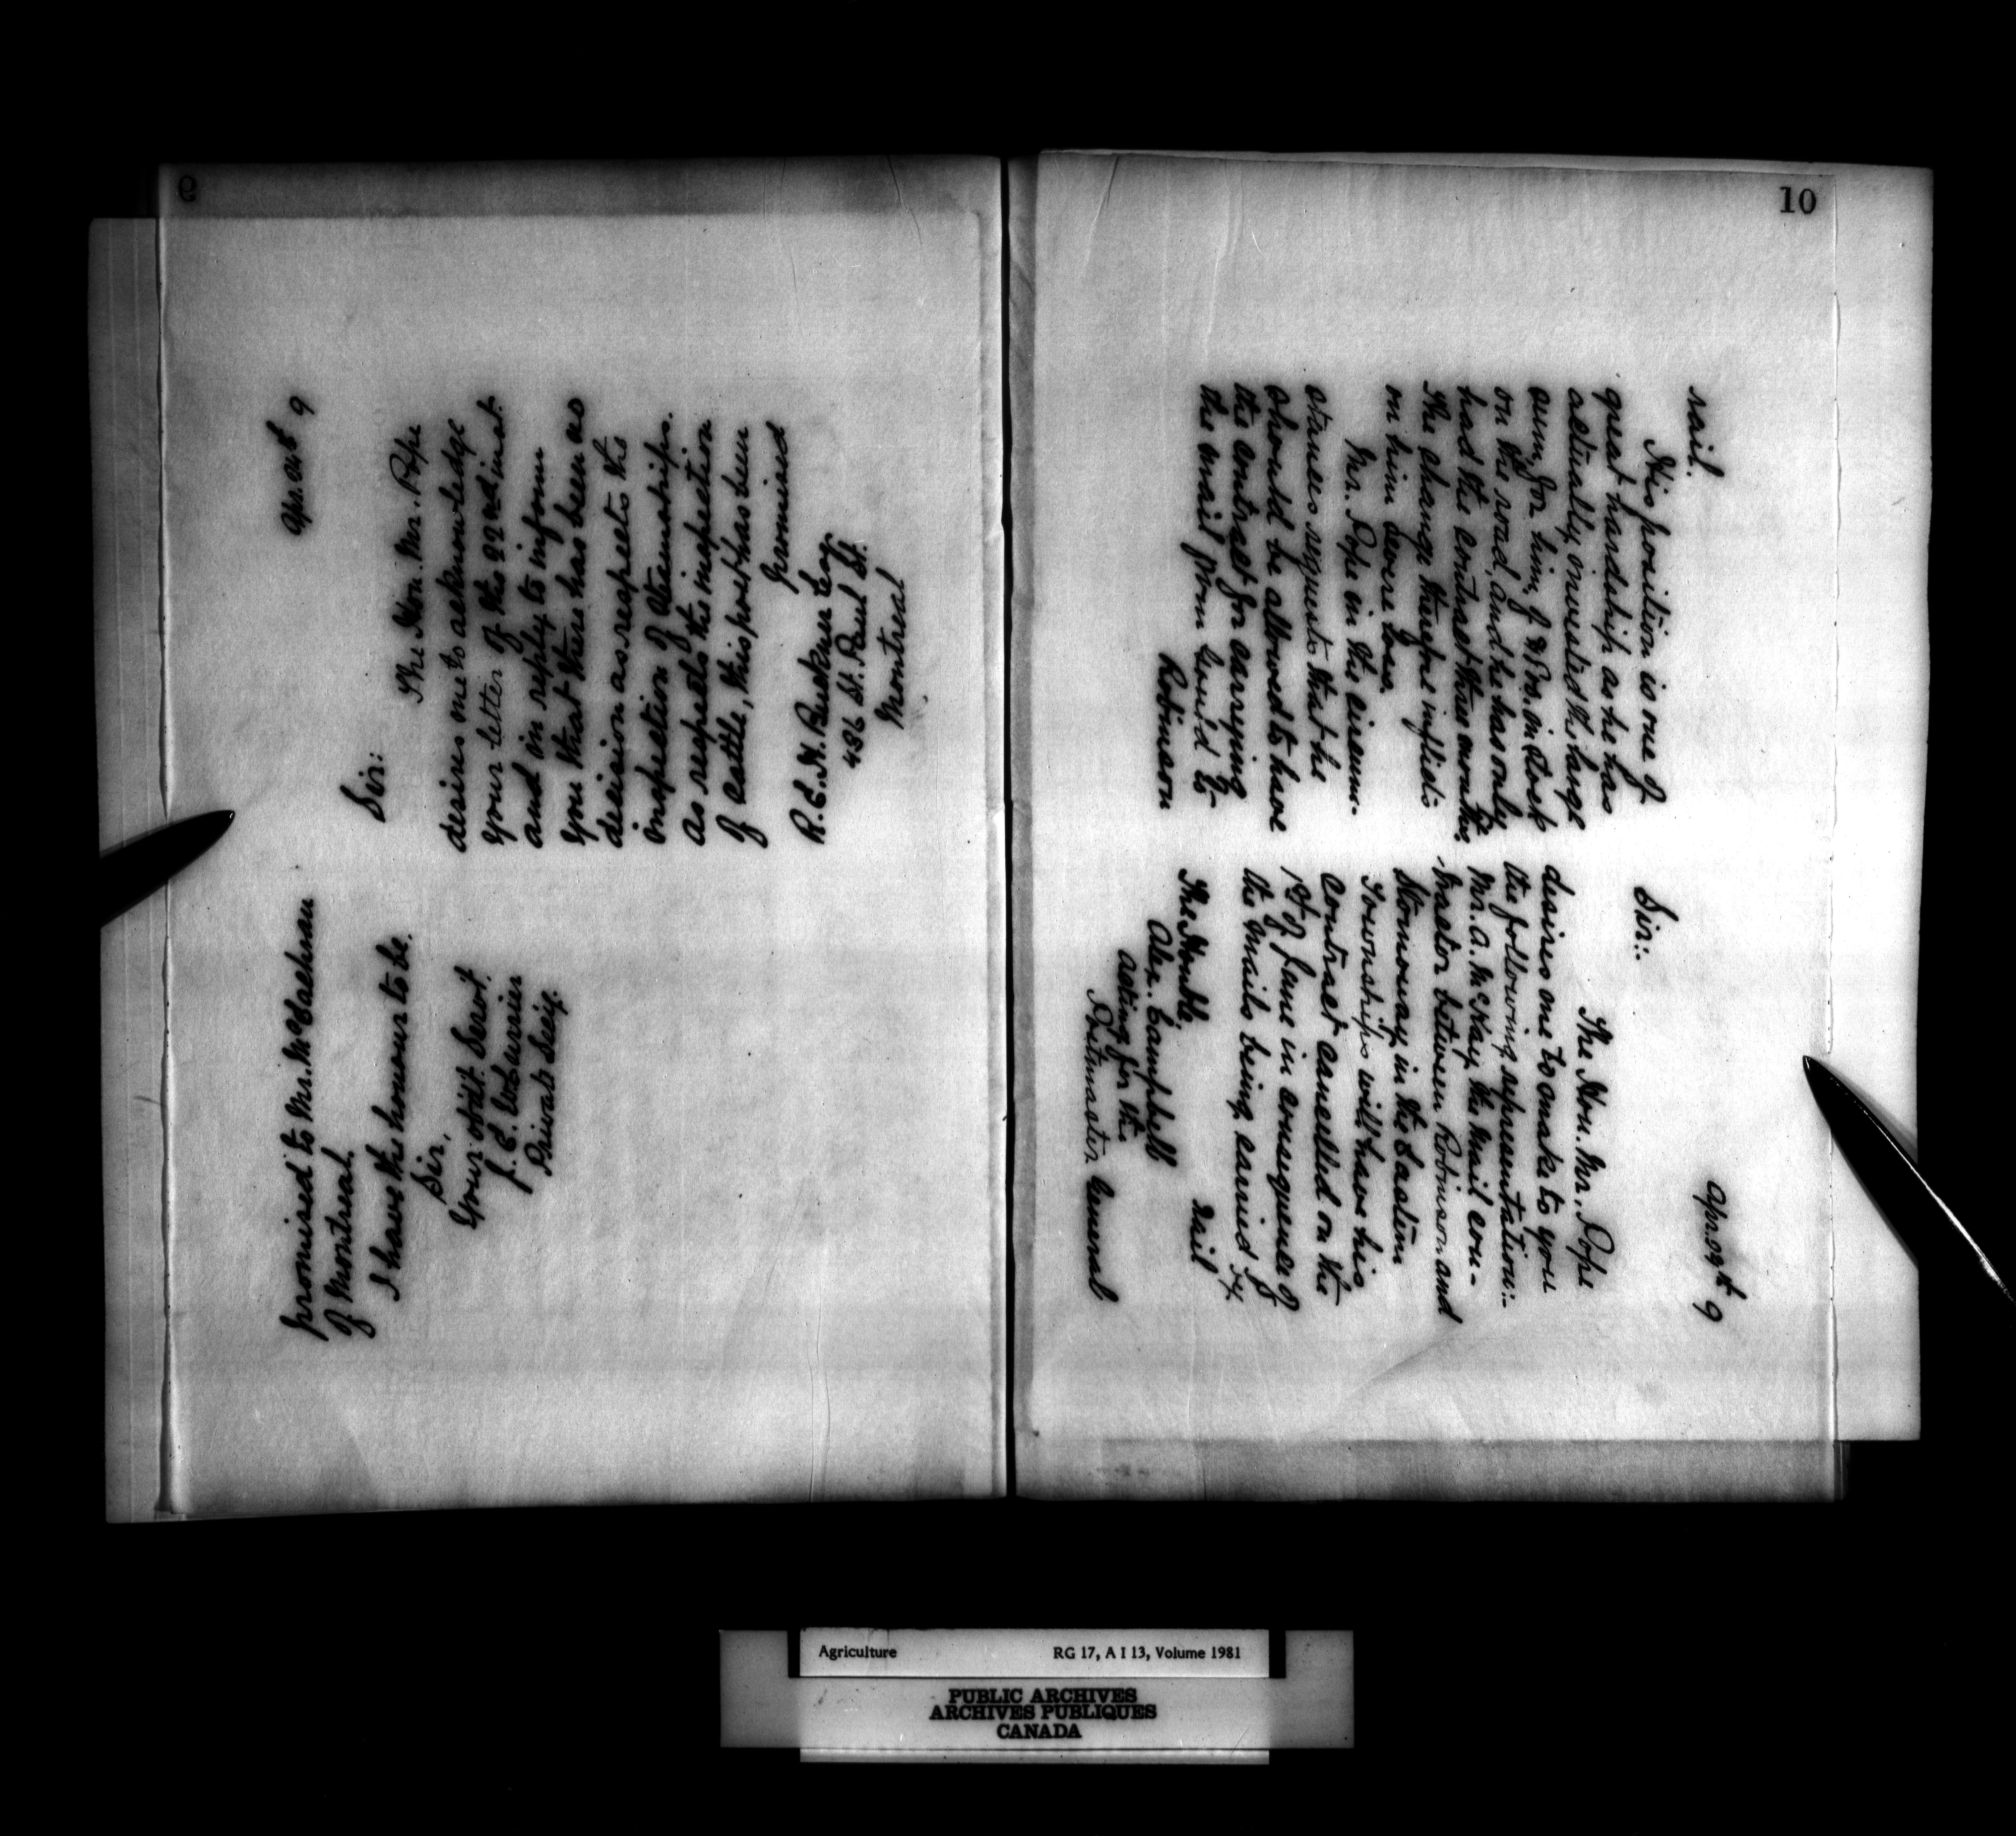 9
Apr. 9
Sir:
The Hon. Mr. Pope
desires me to acknowledge
your letter of the 22nd inst.
and in reply to inform
you that there has been no
decision as respects the
inspection of steamships.
As respects the inspection
of cattle, this post has been
promised
R. E. H. Buckner Esq.
436 St. Paul St.
Montreal
promised to Mr. McEachran
of Montreal.
I have the honour to be,
Sir,
Your obdt. Servt.
Private Secy.
10
Apr. 29th 9
Sir:-
The Hon. Mr. Pope
desires me to make to you
the following representation:-
Mr. A. McKay, the Mail con-
-tractor between Robinson and
Stornoway, in the Eastern
Townships will have his
contract cancelled on the
1st of June in consequence of
the Mails being carried by
rail
The Honble.
Alex. Campbell
acting for the
Postmaster General
rail.
His position is one of
great hardship as he has
actually invested the large
sum, for him, of in stock
on the road, and he has only
had the contract three months.
The change therefore inflicts
on him severe loss.
Mr. Pope in the circum-
stances requests that he
should be allowed to have
the contract for carrying
the mail from to
Robinson
Agriculture RG 17, A I 13, Volume 1981
PUBLIC ARCHIVES
ARCHIVES PUBLIQUES
CANADA